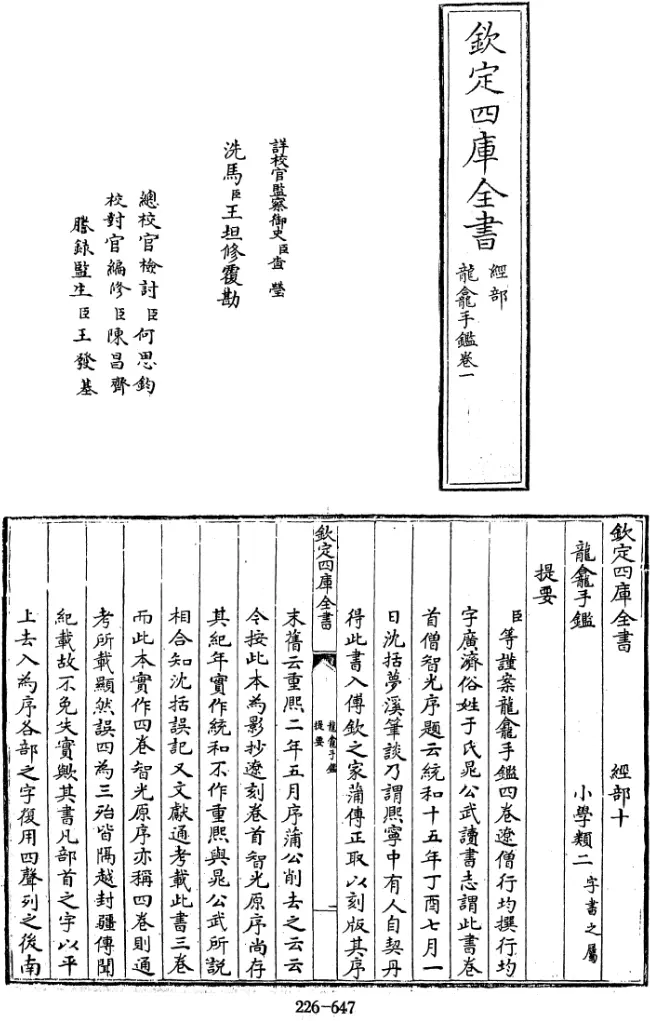 欽定四庫全書
經部
龍龕手鑑卷一
詳校官監察御史臣查瑩
洗馬臣王坦修覆勘
總校官檢討臣何思鈞
校對官編修臣陳昌齊
謄錄監生臣王發基
欽定四庫全書 經部十
龍龕手鑑 小學類二 字書之屬
提要
臣等謹案龍龕手鑑四卷遼僧行均撰行均
字廣濟俗姓于氏晁公武讀書志謂此書卷
首僧智光序題云統和十五年丁酉七月一
日沈括夢溪筆談乃謂熙寧中有人自契丹
得此書入傅欽之家蒲傳正取以刻版其序
欽定四庫全書
龍龕手鑑
提要
一
末舊云重熙二年五月序蒲公削去之云云
今按此本為影抄遼刻卷首智光原序尚存
其紀年實作統和不作重熙與晁公武所說
相合知沈括誤記又文獻通考載此書三卷
而此本實作四卷智光原序亦稱四卷則通
考所載顯然誤四為三殆皆隔越封疆傳聞
紀載故不免失實歟其書凡部首之字以平
上去入為序各部之字復用四聲列之後南
226-647